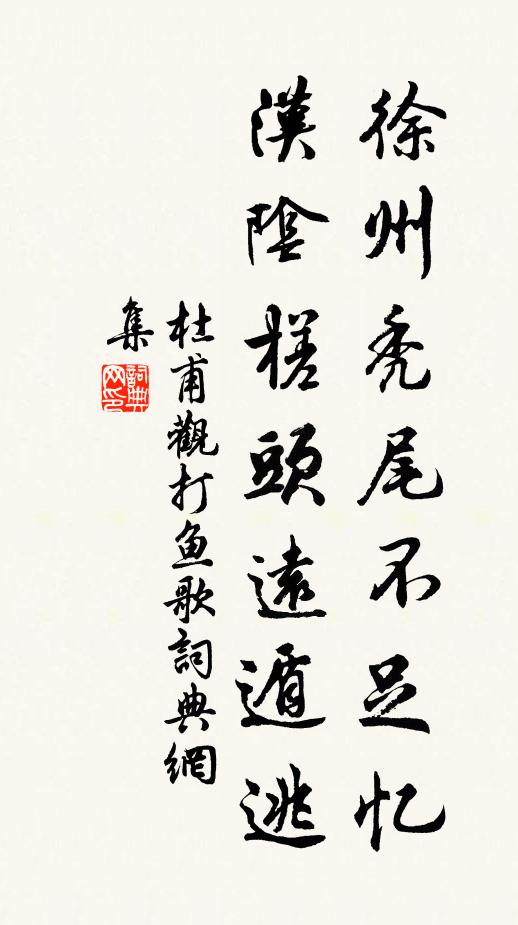 徐州秃尾不足忆
漢陰槎頭遠遁逃
杜甫觀打鱼歌詞典網
集
詞典
网印